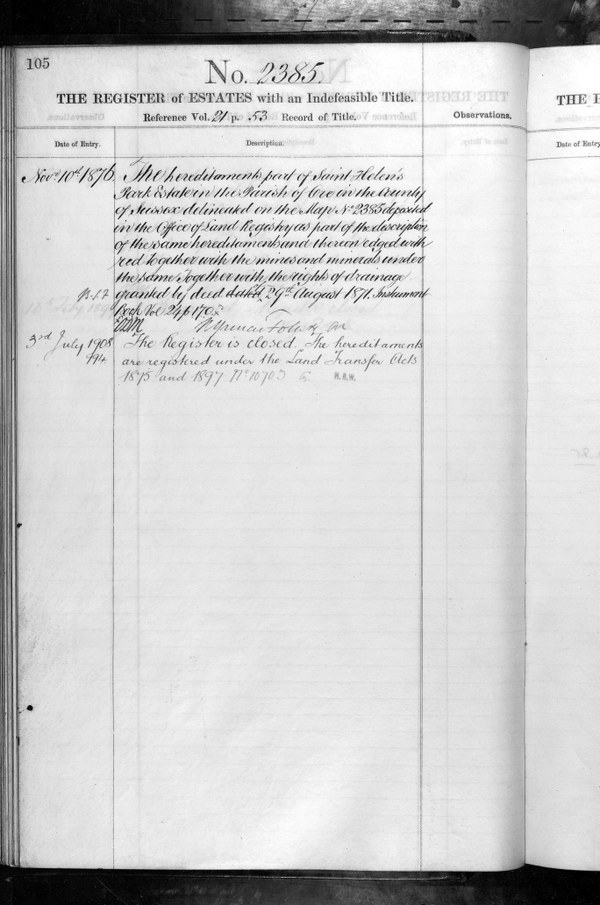 105
No. 2385.
THE REGISTER of ESTATES with an Indefeasible Title.
Reference Vol. 21 p. 53 Record of Title.
Observations.
Date of Entry.
Description.
Novr 10th 1876
The hereditaments part of Saint Helen's
Park Estate in the Parish of Ore in the County
of Sussex delineated on the Map No 2385 deposited
in the Office of Land Registry as part of the description
of the same hereditaments and thereon edged with
red Together with the mines and minerals under
the same Together with the rights of drainage
granted by deed dated 29th August 1871. Instrument
Book Vol. 24 p 170
3rd July 1908
The Register is closed. The hereditaments
are registered under the Land Transfer Acts
1875 and 1897 No 10703
THE E
Date of Entry.